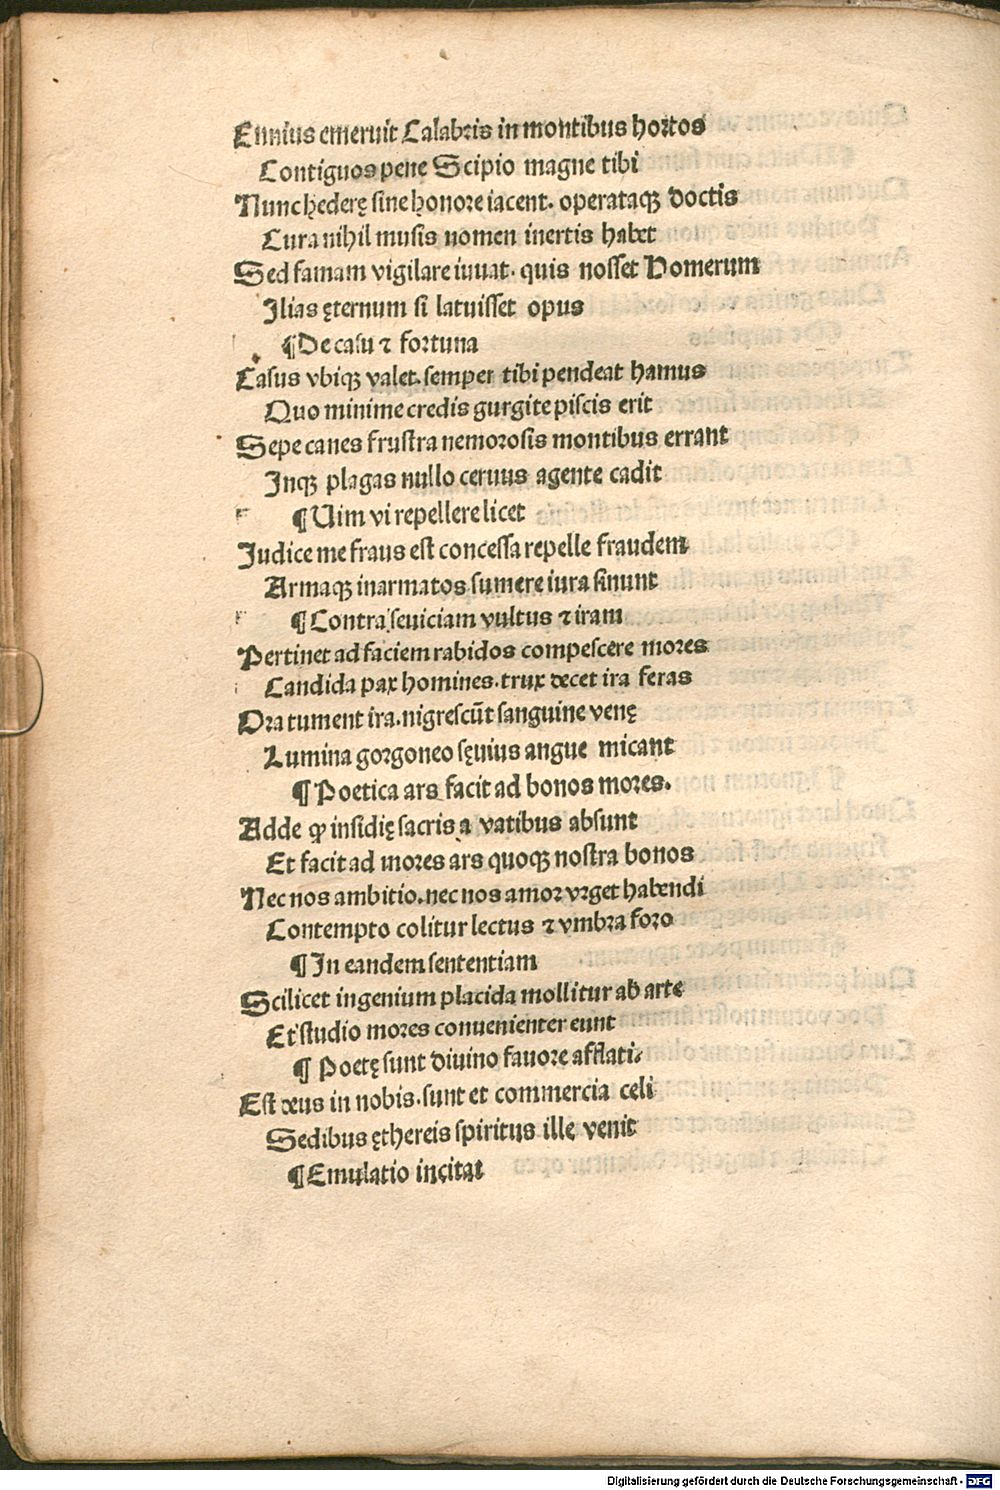 Ennius emeruit Calabris in montibus hortos
Contiguos pene Scipio magne tibi
Nunc hederę sine honore iacent. operataqꝫ doctis
Cura nihil musis nomen inertis habet
Sed famam vigilare iuuat. quis nosset Homerum
Ilias ęternum si latuisset opus
¶ De casu ⁊ fortuna
Casus vbiqꝫ valet. semper tibi pendeat hamus
Quo minime credis gurgite piscis erit
Sepe canes frustra nemorosis montibus errant
Inqꝫ plagas nullo ceruus agente cadit
¶ Uim vi repellere licet
Judice me fraus est concessa repelle fraudem
Armaqꝫ in armatos sumere iura sinunt
¶ Contra seuiciam vultus ⁊ iram
Pertinet ad faciem rabidos compescere mores
Candida pax homines. trux decet ira feras
Ora tument ira. nigrescūt sanguine venę
Lumina gorgoneo sęuius angue micant
¶ Poetica ars facit ad bonos mores.
Adde ꝙ insidię sacris a vatibus absunt
Et facit ad mores ars quoqꝫ nostra bonos
Nec nos ambitio. nec nos amor vrget habendi
Contempto colitur lectus ⁊ vmbra foro
¶ In eandem sententiam
Scilicet ingenium placida mollitur ab arte
Et studio mores conuenienter eunt
¶ Poetę sunt diuino fauore afflati.
Est deus in nobis. sunt et commercia celi
Sedibus ęthereis spiritus ille venit
¶ Emulatio incitat
Digitalisierung gefördert durch die Deutsche Forschungsgemeinschaft - DFG